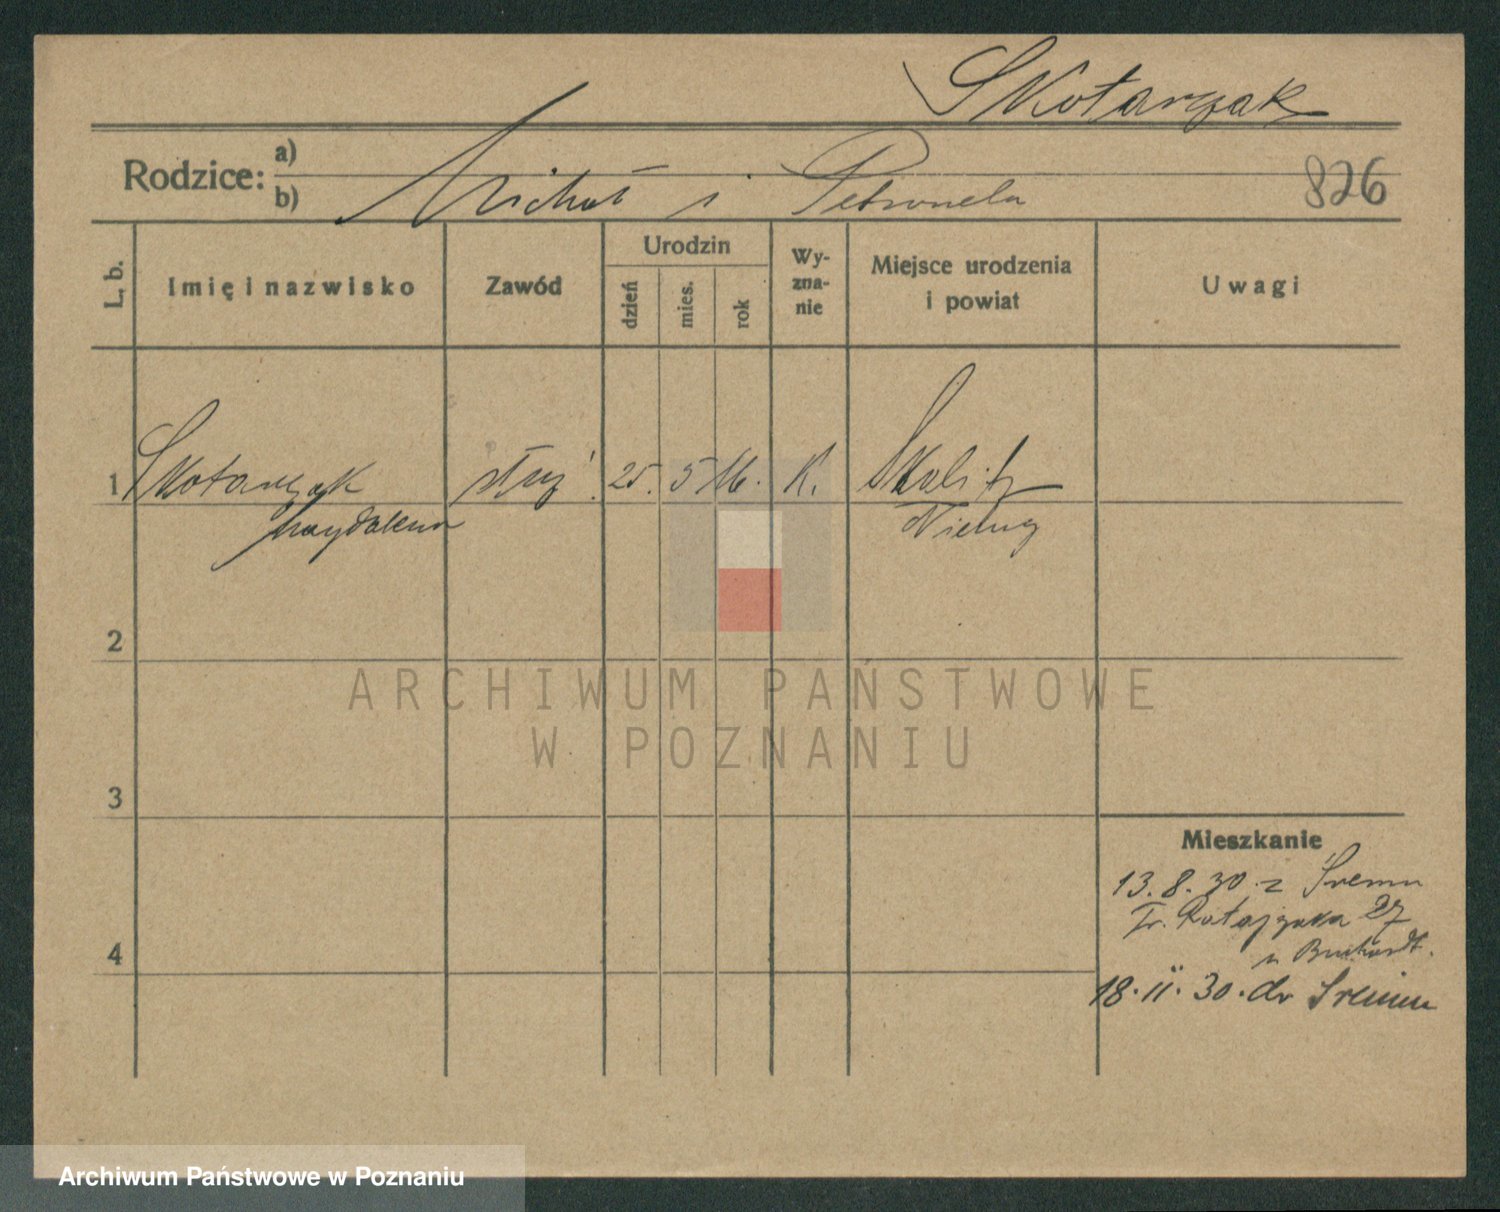 Skotarczak
Rodzice: a)
b) Michał i Petronela
826
L. b.
Imię i nazwisko
Zawód
Urodzin
dzień
mies.
rok
Wy-
zna-
nie
Miejsce urodzenia
i powiat
Uwagi
1 Skotarczak służ. 25. 5 16. K.
Magdalena
2
3
4
Mieszkanie
13. 8. 30 z Śremu
Fr. Ratajczaka 27
u
18. 11. 30. do Śremu
ARCHIWUM PAŃSTWOWE
W POZNANIU
Archiwum Państwowe w Poznaniu